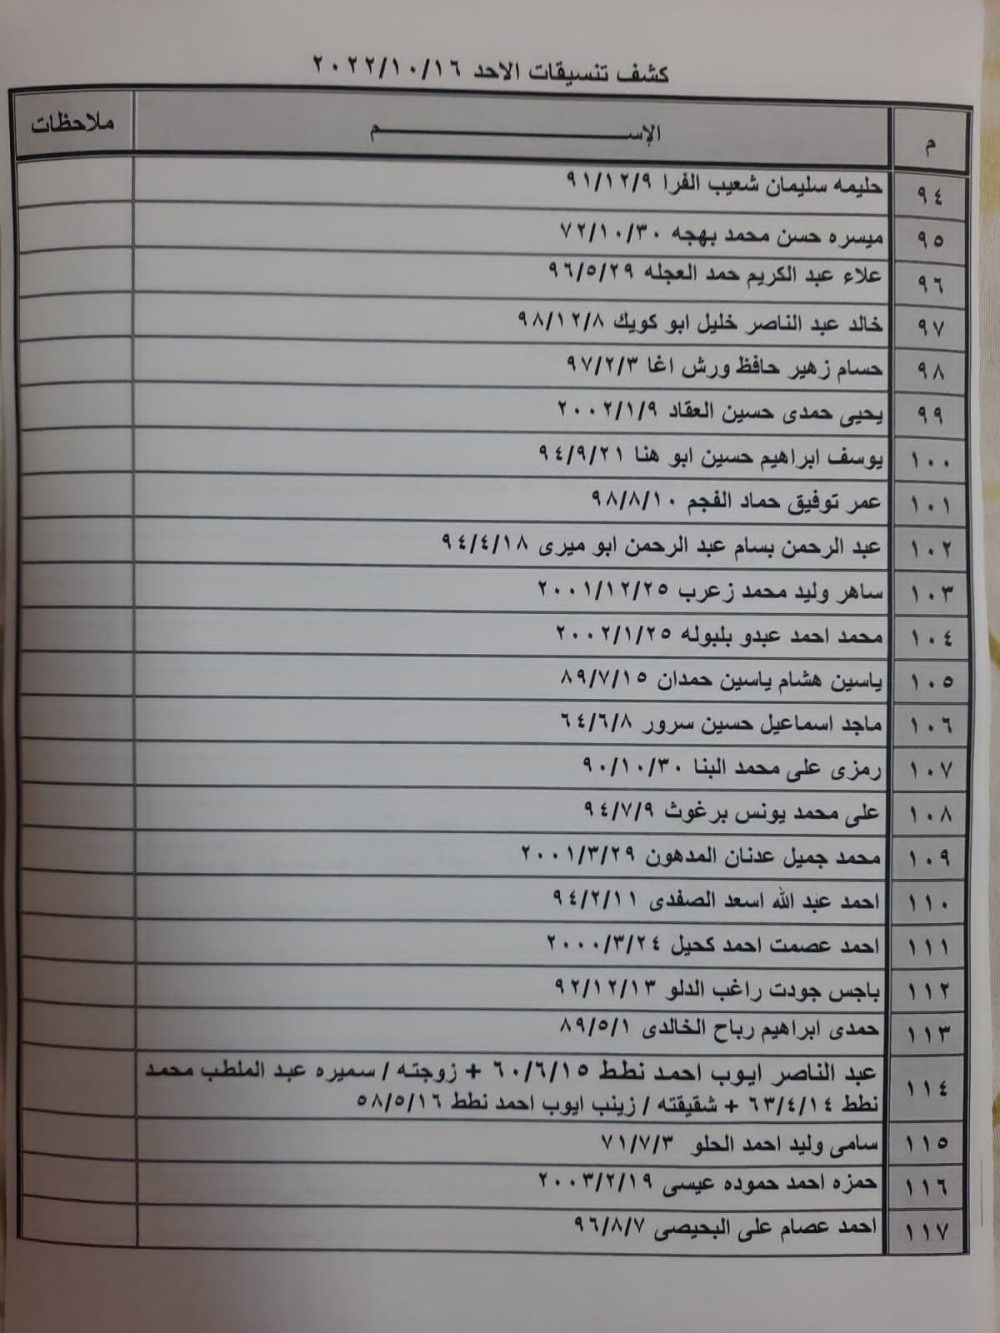 كشف تنسيقات الاحد ٢٠٢٢/١٠/١٦
م الإســـــــــم ملاحظات
٩٤ حليمه سليمان شعيب الفرا ٩١/١٢/٩
٩٥ ميسره حسن محمد بهجه ٧٢/١٠/٣٠
٩٦ علاء عبد الكريم حمد العجله ٩٦/٥/٢٩
٩٧ خالد عبد الناصر خليل ابو كويك ٩٨/١٢/٨
٩٨ حسام زهير حافظ ورش اغا ٩٧/٢/٣
٩٩ يحيى حمدى حسين العقاد ٢٠٠٢/١/٩
١٠٠ يوسف ابراهيم حسين ابو هنا ٩٤/٩/٢١
١٠١ عمر توفيق حماد الفجم ٩٨/٨/١٠
١٠٢ عبد الرحمن بسام عبد الرحمن ابو ميرى ٩٤/٤/١٨
١٠٣ ساهر وليد محمد زعرب ٢٠٠١/١٢/٢٥
١٠٤ محمد احمد عبدو بلبوله ٢٠٠٢/١/٢٥
١٠٥ ياسين هشام ياسين حمدان ٨٩/٧/١٥
١٠٦ ماجد اسماعيل حسين سرور ٦٤/٦/٨
١٠٧ رمزى على محمد البنا ٩٠/١٠/٣٠
١٠٨ على محمد يونس برغوث ٩٤/٧/٩
١٠٩ محمد جميل عدنان المدهون ٢٠٠١/٣/٢٩
١١٠ احمد عبد الله اسعد الصفدى ٩٤/٢/١١
١١١ احمد عصمت احمد كحيل ٢٠٠٠/٣/٢٤
١١٢ باجس جودت راغب الدلو ٩٢/١٢/١٣
١١٣ حمدى ابراهيم رباح الخالدى ٨٩/٥/١
١١٤ عبد الناصر ايوب احمد نطط ٦٠/٦/١٥ + زوجته / سميره عبد الملطب محمد
نطط ٦٣/٤/١٤ + شقيقته / زينب ايوب احمد نطط ٥٨/٥/١٦
١١٥ سامى وليد احمد الحلو ٧١/٧/٣
١١٦ حمزه احمد حموده عيسى ٢٠٠٣/٢/١٩
١١٧ احمد عصام على البحيصى ٩٦/٨/٧